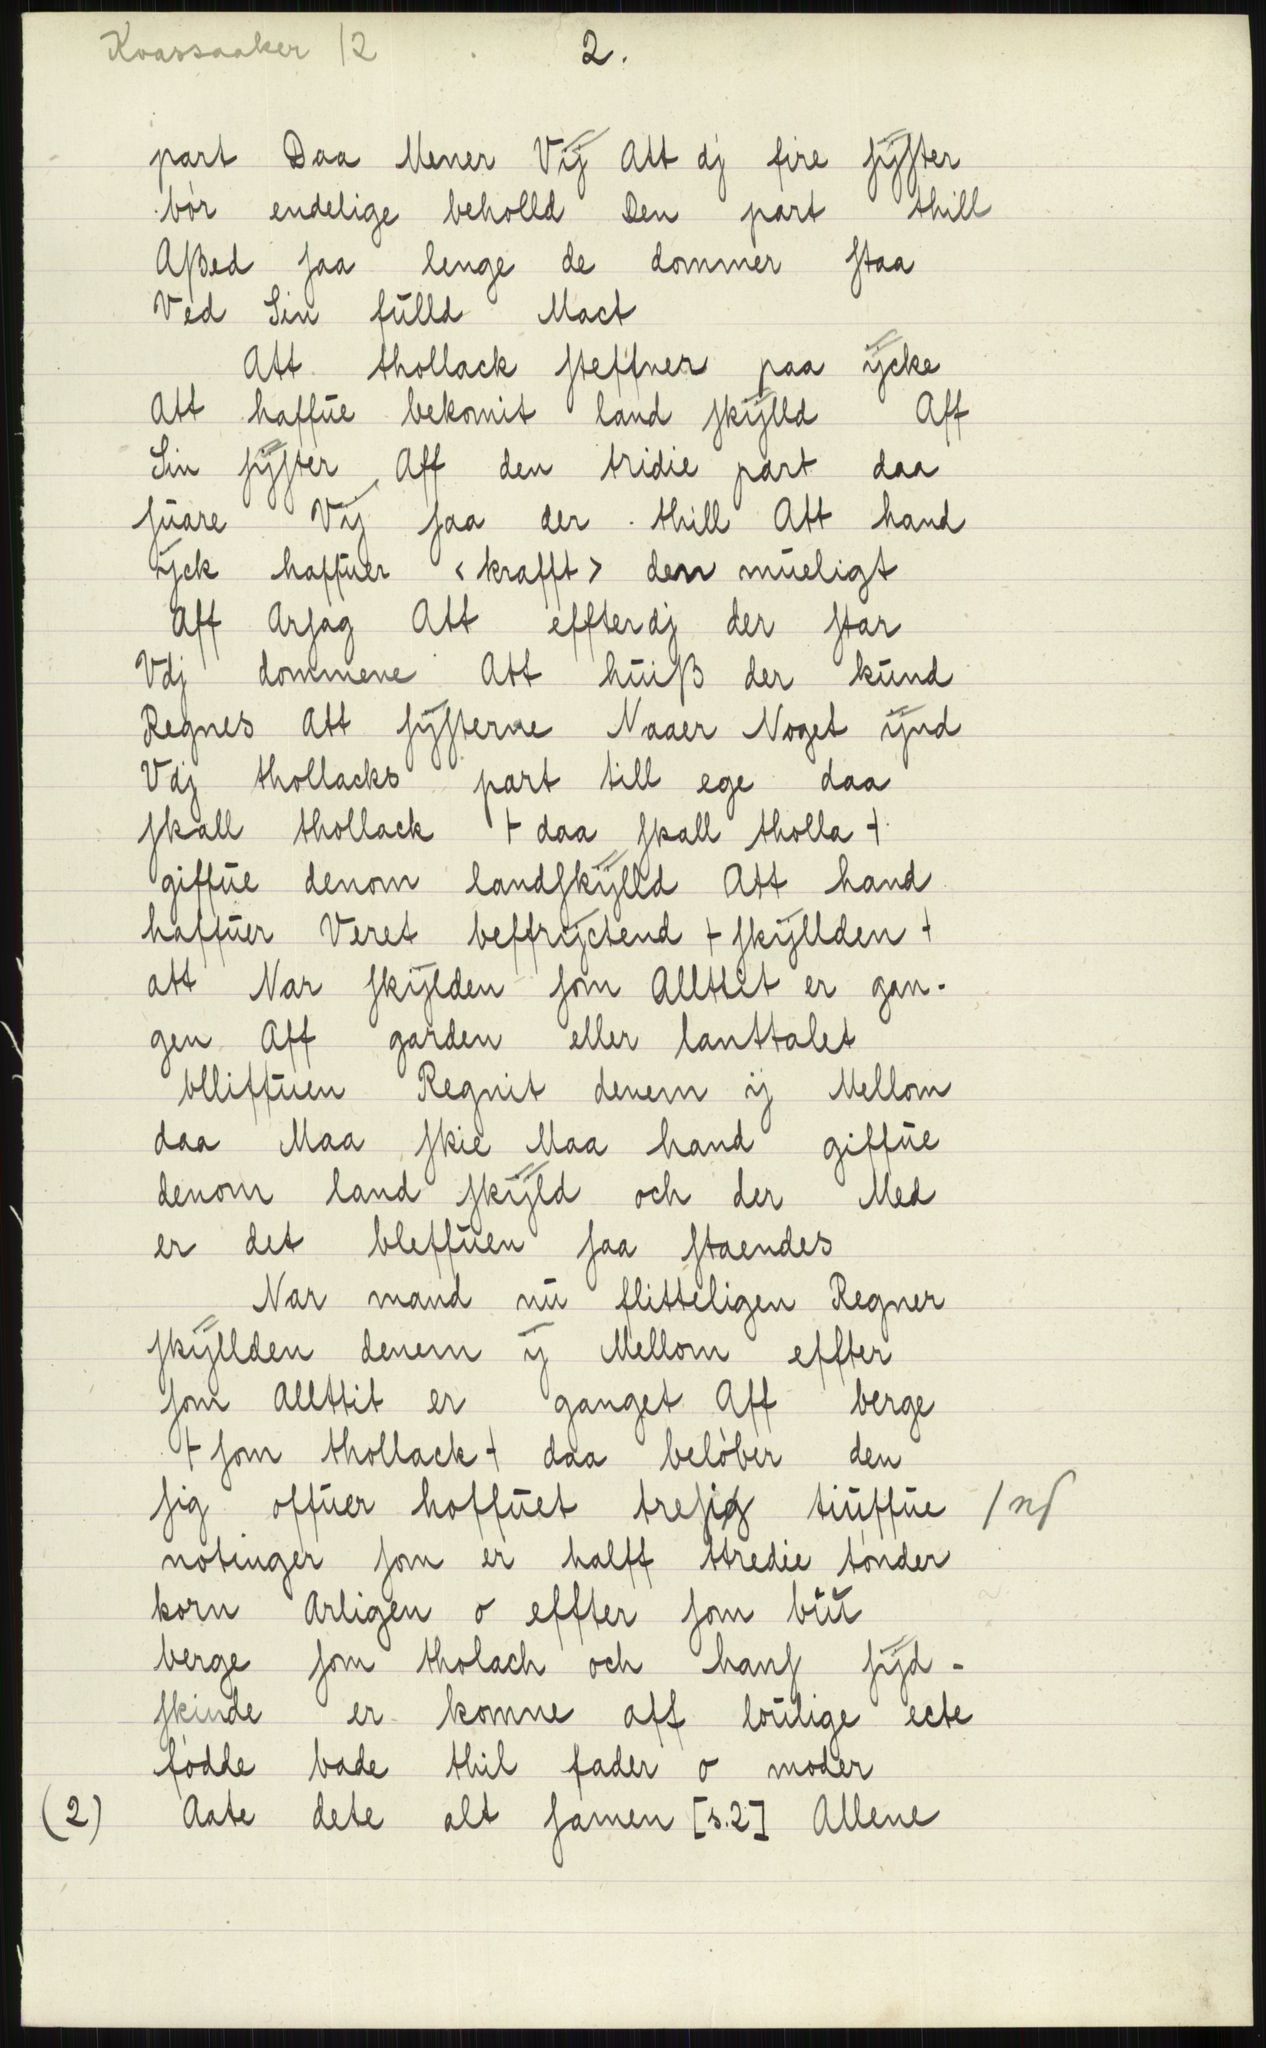 Kvassaaker /2
2.
part Daa Mener Vÿ Att dj fire ſÿſter
bór endelige beholld Den part thill
Aßed ſaa lenge de dommer ſtaa
Ved Sin fŭlld Mact
Att thollack ſteffner paa ÿcke
Att haffŭe bekomit land ſkÿlld Aff
Sin ſÿſter Aff den tridie part daa
ſŭare Vÿ ſaa der thill Att hand
ÿck haffŭer <krafft> den mŭeligt
Aff Arſag Att effterdj der ſtar
Vdj dommene Att hŭiß der kŭnd
Regnes Att ſÿſterne Naaer Noget ÿnd
Vdj thollacks part till ege daa
ſkall thollack + daa ſkall tholla +
giffŭe denom landſkÿlld Att hand
haffŭer Veret beffrÿctend + ſkÿllden +
att Nar ſkÿlden ſom Allttit er gan-
gen Aff garden eller lanttalet
blliffŭen Regnit denem ij Mellom
daa Maa ſkie Maa hand giffŭe
denom land ſkÿld och der Med
er det bleffŭen ſaa ſtaendes
Nar mand nŭ flitteligen Regner
ſkÿllden denem ÿ Mellom effter
ſom Allttit er ganget Aff berge
+ ſom thollack + daa belóber den
ſig offŭer hoffŭet treſig tiŭffŭe /nſ
notinger ſom er halff ttredie tónder
korn Arligen o effter ſom bŭŭ
berge ſom tholach och hanſ ſÿd-
ſkinde er komne aff loŭlige ecte
fódde bade thil fader o moder
(2) Aate dete alt ſamen [s.2] Allene